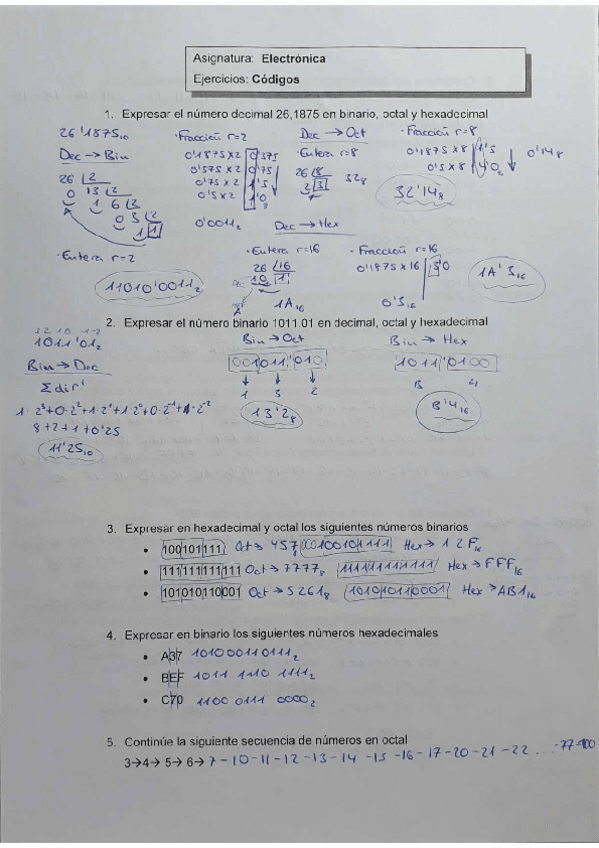 Asignatura: Electrónica
Ejercicios: Códigos
1. Expresar el número decimal 26,1875 en binario, octal y hexadecimal
26'1875₁₀
Dec → Bin
26 |2
0 13 |2
1 6 |2
0 3 |2
1 |1|
· Entera r=2
11010'0011₂
· Fracción r=2
0'1875 x 2 0'375
0'375 x 2 0'75
0'75 x 2 1'5
0'5 x 2 1'0
0'0011₂
Dec → Oct
· Entera r=8
26 |8
2 |3|
32₈
· Fracción r=8
0'1875 x 8 1'5
0'5 x 8 4'0
0'14₈
32'14₈
Dec → Hex
· Entera r=16
26 |16
10 |1|
A
1A₁₆
· Fracción r=16
0'1875 x 16 3'0
0'3₁₆
1A'3₁₆
2. Expresar el número binario 1011.01 en decimal, octal y hexadecimal
3 2 1 0 -1 -2
1011'01₂
Bin → Dec
Σdirⁱ
1·2³+0·2²+1·2¹+1·2⁰+0·2⁻¹+1·2⁻²
8+2+1+0'25
11'25₁₀
Bin → Oct
001011'010
1 3 2
13'2₈
Bin → Hex
1011'0100
B 4
B'4₁₆
3. Expresar en hexadecimal y octal los siguientes números binarios
• 100101111 Oct → 457₈ 000100101111 Hex → 12F₁₆
• 111111111111 Oct → 7777₈ 111111111111 Hex → FFF₁₆
• 101010110001 Oct → 5261₈ 101010110001 Hex → AB1₁₆
4. Expresar en binario los siguientes números hexadecimales
• A37 101000110111₂
• BEF 1011 1110 1111₂
• C70 1100 0111 0000₂
5. Continúe la siguiente secuencia de números en octal
3→4→ 5→ 6→ 7-10-11-12-13-14-15-16-17-20-21-22 ... -77-100